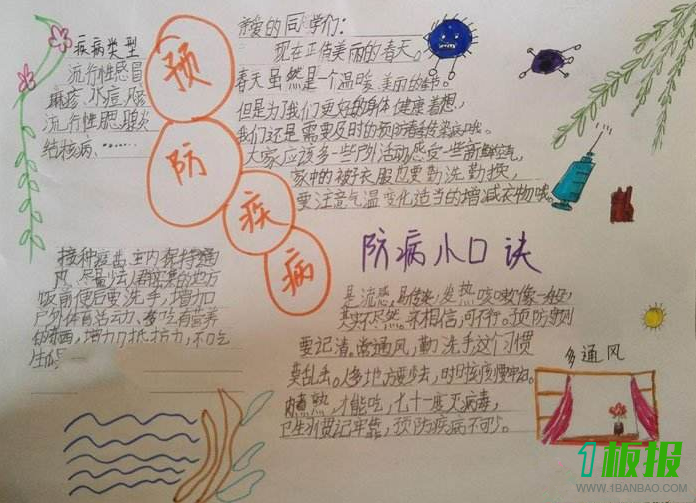 疾病类型
流行性感冒
麻疹、水痘、风疹
流行性腮腺炎
结核病、……
预
防
疾
病
亲爱的同学们：
现在正待美丽的春天。
春天虽然是一个温暖、美丽的季节。
但是为了我们更好的身体健康着想，
我们还是需要及时的预防春季传染病哦。
大家应该多一些户外活动感受一些新鲜空气，
家中的被子衣服也要勤洗勤换，
要注意气温变化适当的增减衣物哦。
接种疫苗、室内保持通
风、尽量少去人群密集的地方
饭前便后要洗手，增加
户外体育活动、多吃有营养
的东西，增加抵抗力，不吃
生
防病小口诀
是流感，易传染，发热咳嗽像一般，
其实不尽然。来相信，可不行。预防守则
要记清。常通风，勤洗手这个习惯
要乱丢。人多地方要少去，时时
肉煮熟，才能吃，七十一度灭病毒，
卫生习惯记牢靠，预防疾病不可少。
多通风
1板报
WWW.1BANBAO.COM